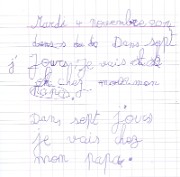 Mardi 4 novembre 201
Dans sept
j' jours je vais
chez mon
papa.
Dans sept jours
je vais chez
mon papa.